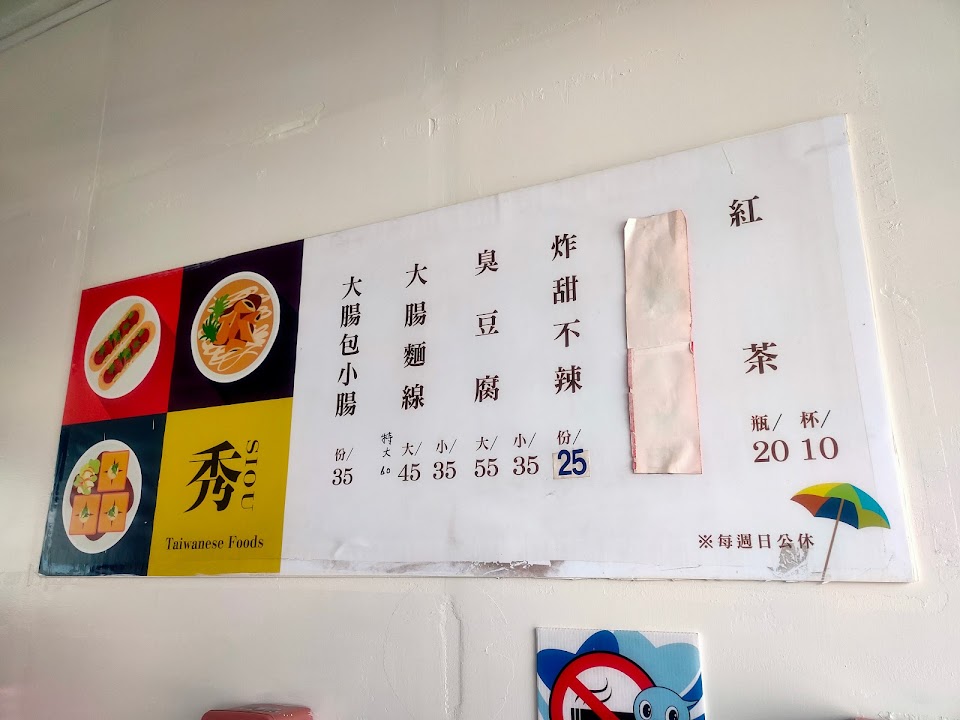 秀
SIOU
Taiwanese Foods
大腸包小腸
份/
35
大腸麵線
特大
60
大/
45
小/
35
臭豆腐
大/
55
小/
35
炸甜不辣
份/
25
紅茶
瓶/
20
杯/
10
※每週日公休